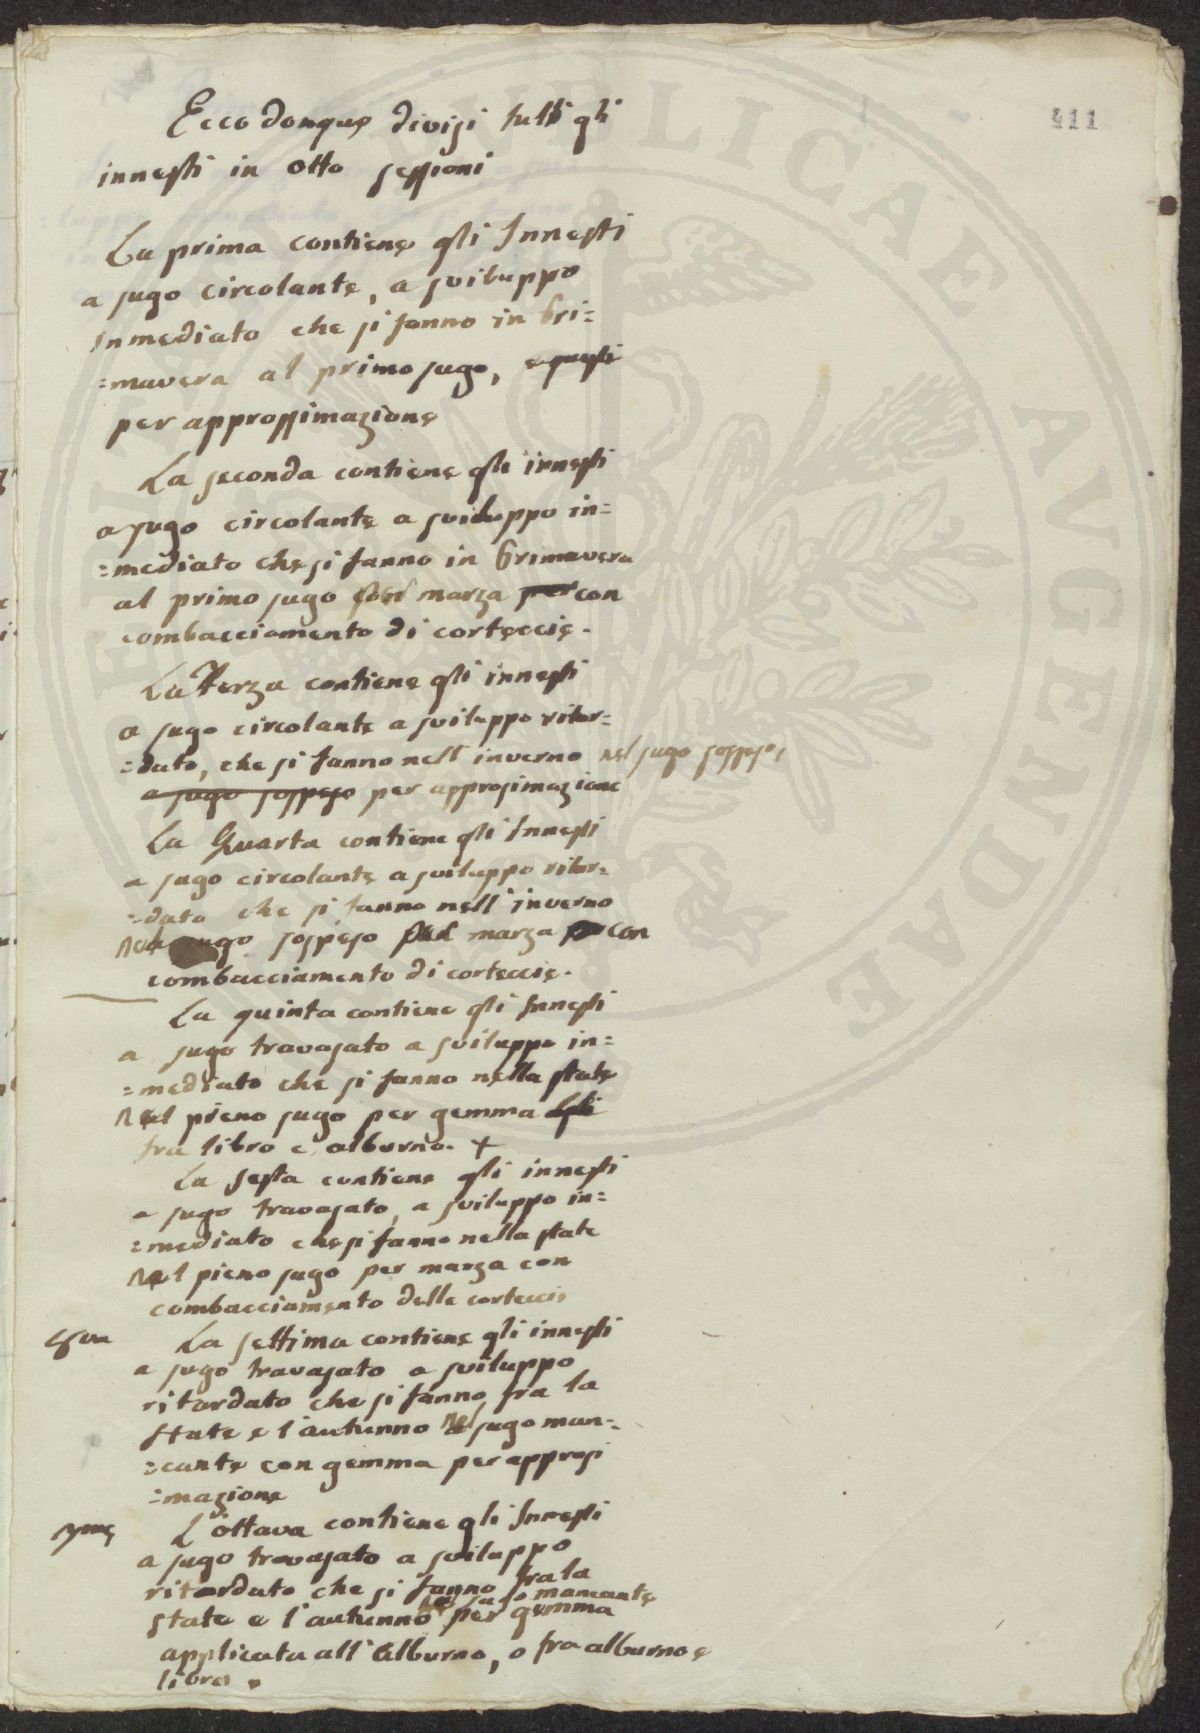 411
Ecco donque divisi tutti gli
innesti in otto sessioni
La prima contiene gli Innesti
a sugo circolante, a sviluppo
inmediato che si fanno in Pri=
=mavera al primo sugo, e questi
per approssimazione
La seconda contiene gli innesti
a sugo circolante a sviluppo in=
=mediato che si fanno in Primavera
al primo sugo marza per con
combacciamento di corteccie.
La Terza contiene gli innesti
a sugo circolante a sviluppo ritar=
=dato, che si fanno nell'inverno nel sugo sospeso,
a sugo sospeso per approsimazione
La Quarta contiene gli Innesti
a sugo circolante a sviluppo ritar=
=dato che si fanno nell'inverno
sugo sospeso marza con
combacciamento di corteccie.
La quinta contiene gli Innesti
a sugo travasato a sviluppo in=
=mediato che si fanno nella state
nel pieno sugo per gemma
fra libro e alburno. +
La sesta contiene gli innesti
a sugo travasato, a sviluppo in=
=mediato che si fanno nella state
nel pieno sugo per marza con
combacciamento delle corteccie
La settima contiene gli innesti
a sugo travasato a sviluppo
ritardato che si fanno fra la
state e l'autunno nel sugo man=
=cante con gemma per approsi
=mazione
L'ottava contiene gli Innesti
a sugo travasato a sviluppo
ritardato che si fanno fra la
sugo mancante
state e l'autunno per gemma
applicata all'alburno, o fra alburno e
libro.
PVBLICAE AVGENDAE